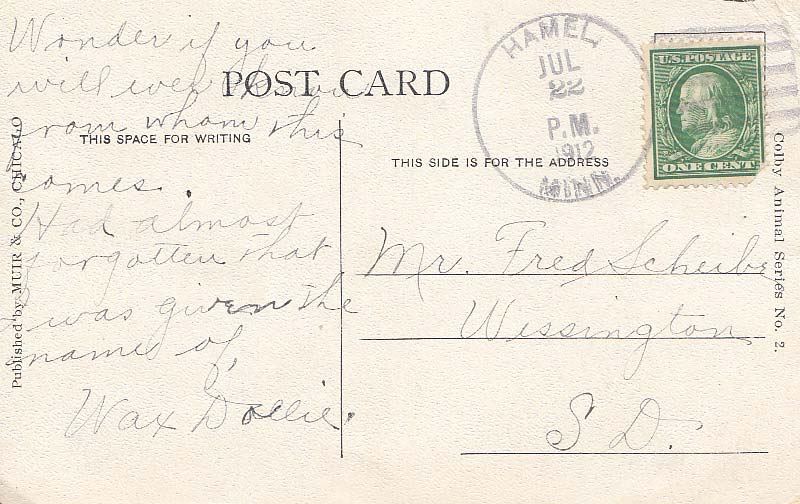 Wonder if you
will ever know
from whom this
comes.
Had almost
forgotten that
I was given the
name of,
Wax Dollie.
POST CARD
THIS SPACE FOR WRITING
THIS SIDE IS FOR THE ADDRESS
HAMEL,
JUL
22
P.M.
1912
MINN.
U.S. POSTAGE
ONE CENT
Mr. Fred Scheibe
Wessington
S D.
Published by MUIR & CO., CHICAGO
Colby Animal Series No. 2.